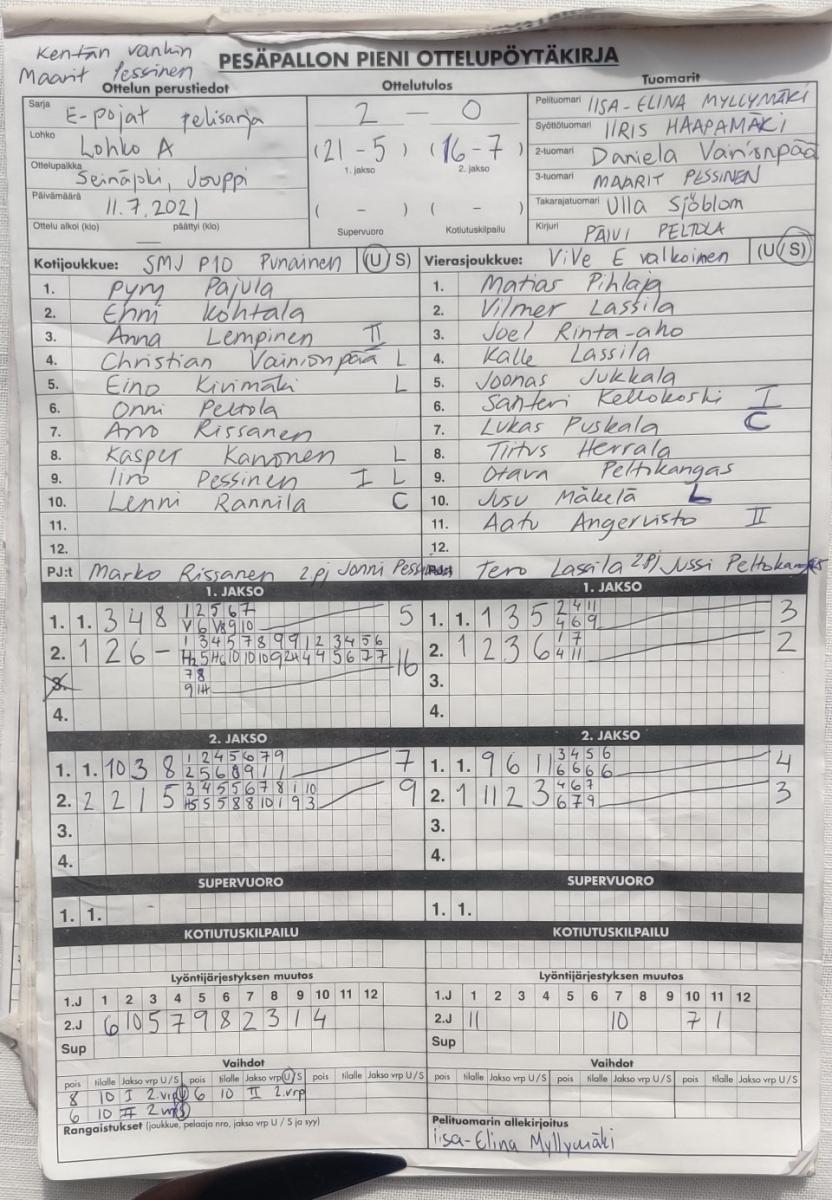 Kentän vanhin
Maarit Pessinen
PESÄPALLON PIENI OTTELUPÖYTÄKIRJA
Ottelun perustiedot
Ottelutulos
Tuomarit
Sarja E-pojat pelisarja
Lohko Lohko A
Ottelupaikka Seinäjoki, Jouppi
Päivämäärä 11.7.2021
Ottelu alkoi (klo) — päättyi (klo)
2 – 0
(21 - 5) (16 - 7)
1. jakso 2. jakso
( - ) ( - )
Supervuoro Kotiutuskilpailu
Pelituomari IISA-ELINA MYLLYMÄKI
Syöttötuomari IIRIS HAAPAMÄKI
2-tuomari Daniela Vainionpää
3-tuomari MAARIT PESSINEN
Takarajatuomari Ulla Sjöblom
Kirjuri PÄIVI PELTOLA
Kotijoukkue: SMJ P10 Punainen (U/S)
1. Pyry Pajula
2. Enni Kohtala
3. Anna Lempinen II
4. Christian Vainionpää L
5. Eino Kivimäki L
6. Onni Peltola
7. Arvo Rissanen
8. Kasper Kanonen L
9. Iiro Pessinen I L
10. Lenni Rannila C
11.
12.
PJ:t Marko Rissanen 2.pj Jonni
Vierasjoukkue: ViVe E valkoinen (U/S)
1. Matias Pihlaja
2. Vilmer Lassila
3. Joel Rinta-aho
4. Kalle Lassila
5. Joonas Jukkala
6. Santeri Kellokoski I
7. Lukas Puskala C
8. Tiitus Herrala
9. Otava Peltokangas
10. Jusu Mäkelä L
11. Aatu Angervisto II
12.
Tero Lassila 2pj Jussi Peltokangas
1. JAKSO
1. 1. 3 4 8 1 2 5 6 7 5
V 6 V8 9 10
2. 1 2 6 – 1 3 4 5 7 8 9 9 1 2 3 4 5 6 16
7 8
3.
4.
1. JAKSO
1. 1. 1 3 5 2 4 11 3
4 6 9
2. 1 2 3 6 1 7 2
4 11
3.
4.
2. JAKSO
1. 1. 10 3 8 1 2 4 5 6 7 9 7
2 5 6 8 9 1 1
2. 2 2 1 5 3 4 5 5 6 7 8 1 10 9
H5 5 5 8 8 10 1 9 3
3.
4.
2. JAKSO
1. 1. 9 6 11 3 4 5 6 4
6 6 6 6
2. 1 11 2 3 4 6 7 3
6 7 9
3.
4.
SUPERVUORO
1. 1.
SUPERVUORO
1. 1.
KOTIUTUSKILPAILU
KOTIUTUSKILPAILU
Lyöntijärjestyksen muutos
1.J 1 2 3 4 5 6 7 8 9 10 11 12
2.J 6 10 5 7 9 8 2 3 1 4
Sup
Lyöntijärjestyksen muutos
1.J 1 2 3 4 5 6 7 8 9 10 11 12
2.J 11 10 7 1
Sup
Vaihdot
pois tilalle Jakso vrp U/S pois tilalle Jakso vrp U/S pois tilalle Jakso vrp U/S
8 10 I 2.vrp U 6 10 II 2.vrp
6 10 II 2 vrp S
Vaihdot
pois tilalle Jakso vrp U/S pois tilalle Jakso vrp U/S pois tilalle Jakso vrp U/S
Rangaistukset (joukkue, pelaaja nro, jakso vrp U / S ja syy)
Pelituomarin allekirjoitus
Iisa-Elina Myllymäki